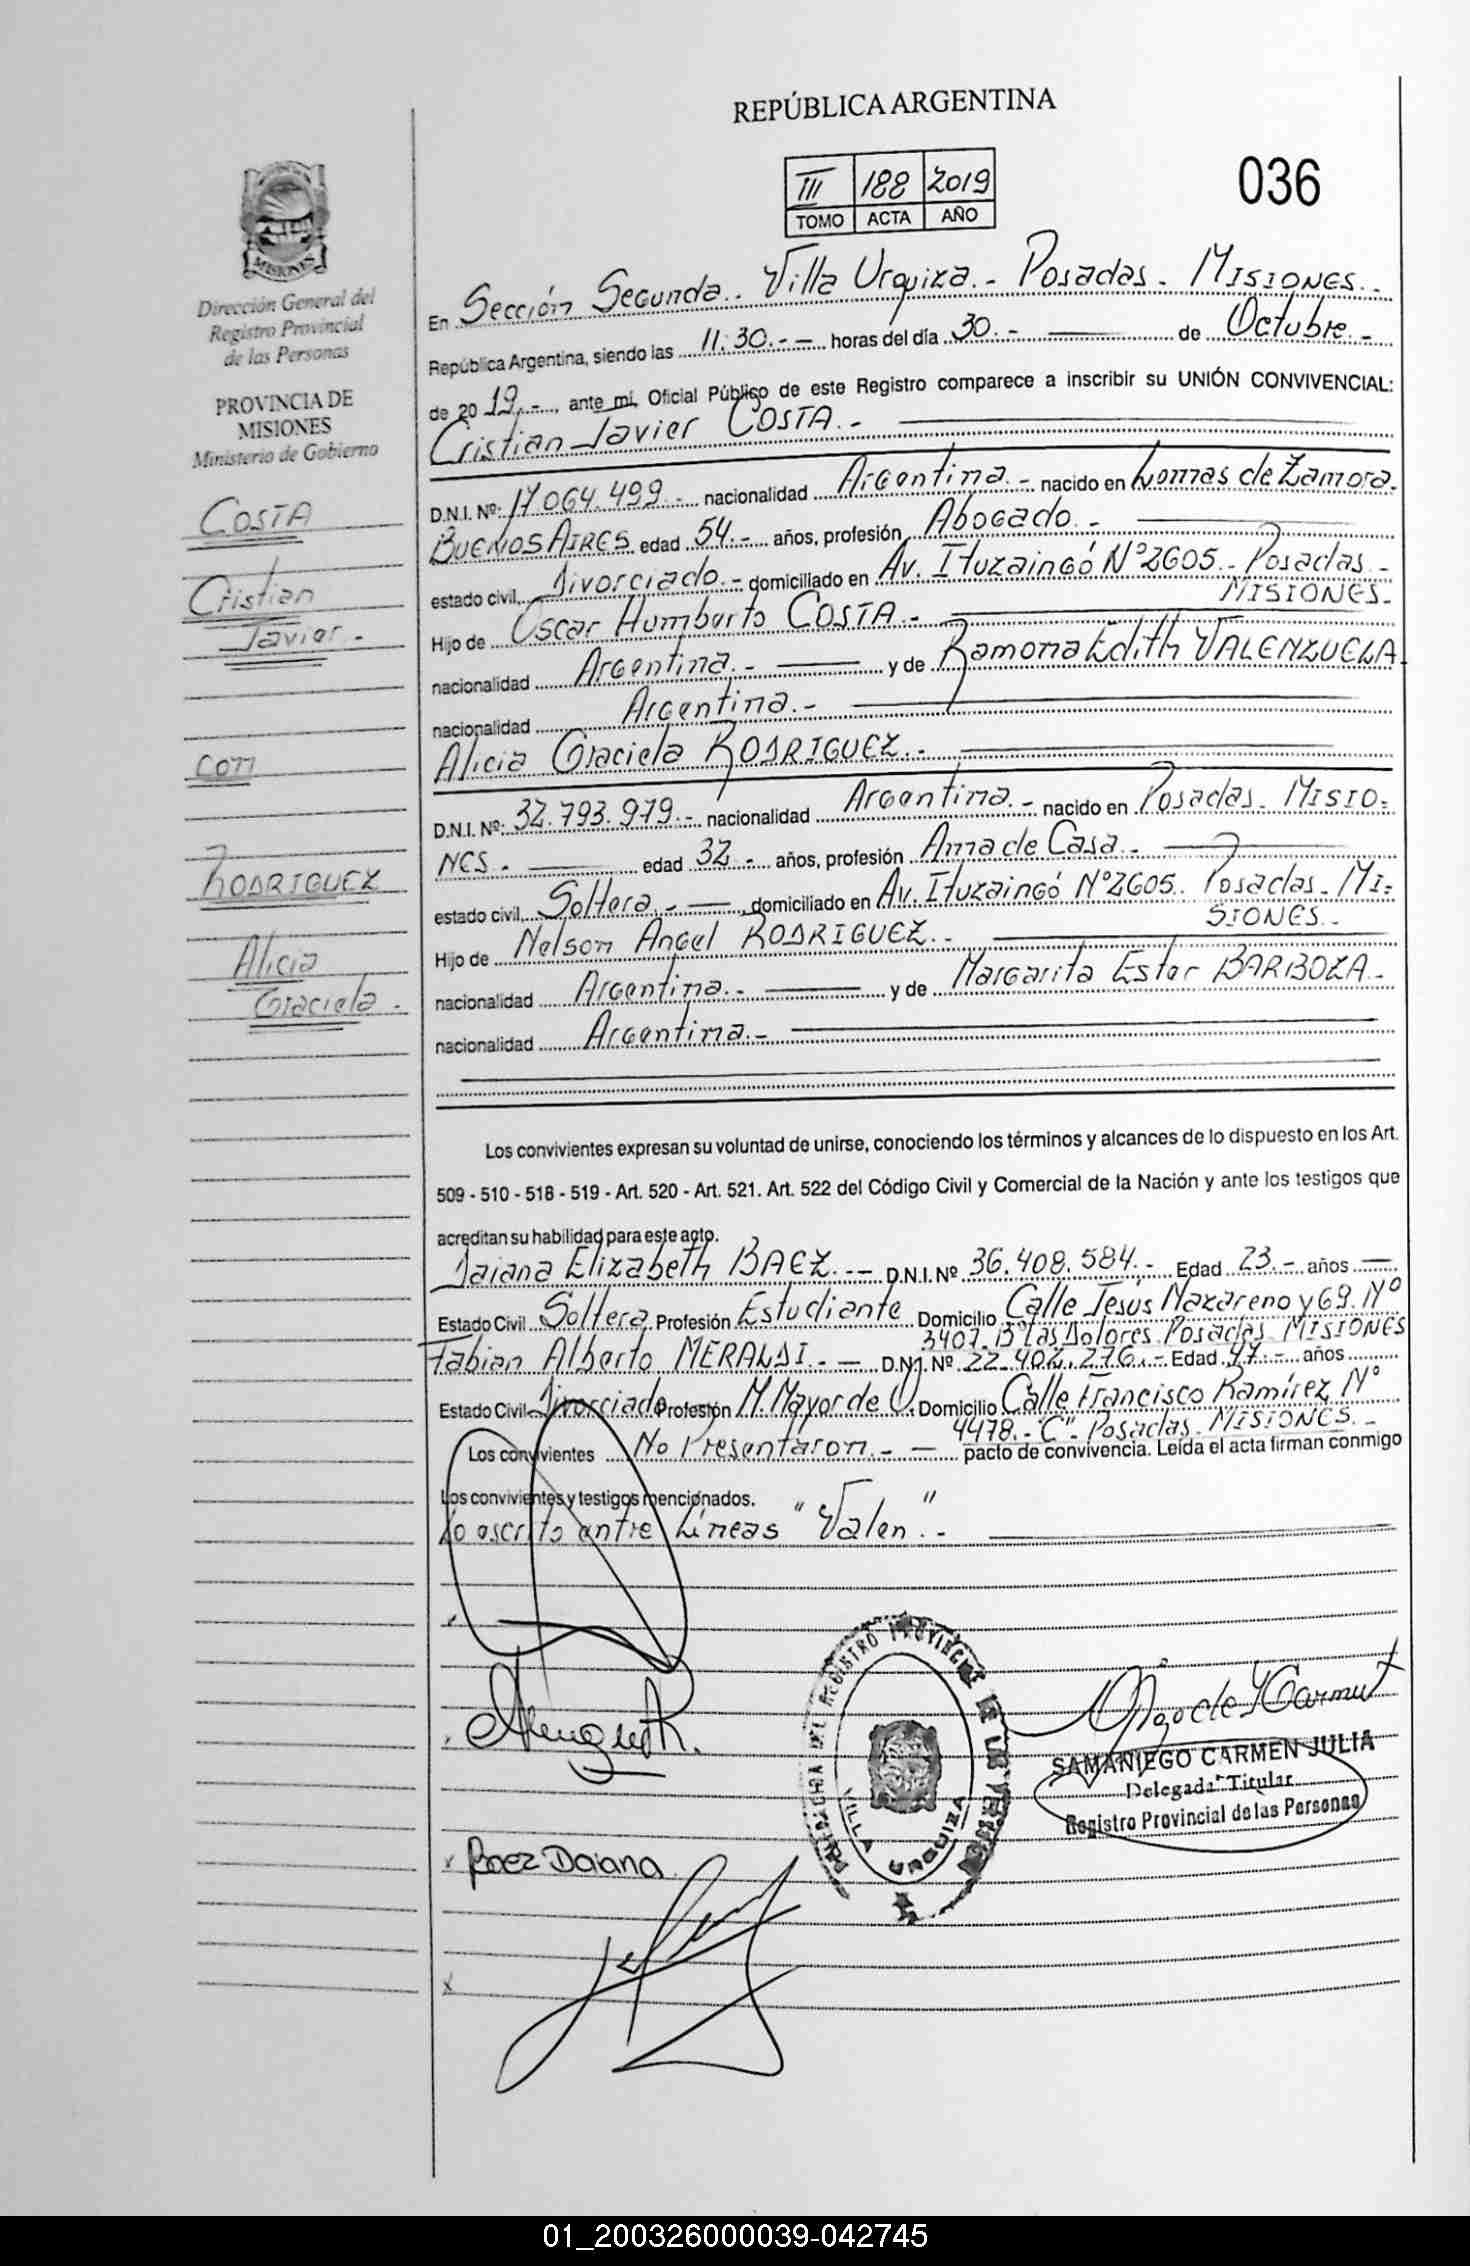 REPÚBLICA ARGENTINA
036
III 188 2019
TOMO ACTA AÑO
MISIONES
Dirección General del
Registro Provincial
de las Personas
PROVINCIA DE
MISIONES
Ministerio de Gobierno
COSTA
Cristian
Javier.-
con
RODRIGUEZ
Alicia
Graciela.-
En Sección Segunda.. Villa Urquiza.- Posadas.- MISIONES.-
República Argentina, siendo las 11:30.-- horas del día 30.- de Octubre.-
de 20 19.-, ante mi, Oficial Público de este Registro comparece a inscribir su UNIÓN CONVIVENCIAL:
Cristian Javier COSTA.-
D.N.I. Nº: 17.064.499.- nacionalidad Argentina.- nacido en Lomas de Zamora.
BUENOS AIRES edad 54.- años, profesión Abogado.-
estado civil, Divorciado.- domiciliado en Av. Ituzaingó N°2605.- Posadas.-
MISIONES.-
Hijo de Oscar Humberto COSTA.-
nacionalidad Argentina.- y de Ramona Edith VALENZUELA.
nacionalidad Argentina.-
Alicia Graciela RODRIGUEZ.-
D.N.I. Nº: 32.793.979.- nacionalidad Argentina.- nacido en Posadas. MISIO-
NES.- edad 32.- años, profesión Ama de Casa.-
estado civil, Soltera.- domiciliado en Av. Ituzaingó N°2605. Posadas. MI-
SIONES.-
Hijo de Nelson Angel RODRIGUEZ.-
nacionalidad Argentina.- y de Margarita Ester BARBOZA.-
nacionalidad Argentina.-
Los convivientes expresan su voluntad de unirse, conociendo los términos y alcances de lo dispuesto en los Art.
509 - 510 - 518 - 519 - Art. 520 - Art. 521. Art. 522 del Código Civil y Comercial de la Nación y ante los testigos que
acreditan su habilidad para este acto.
Daiana Elizabeth BAEZ.-- D.N.I. Nº 36.408.584.- Edad 23.- años
Estado Civil Soltera Profesión Estudiante Domicilio Calle Jesús Nazareno y 69. N°
3407. B° Las Dolores. Posadas. MISIONES
Fabian Alberto MERALDI.- D.N.I. Nº 22.402.276.- Edad 47.- años
Estado Civil Divorciado Profesión M. Mayor de O. Domicilio Calle Francisco Ramírez N°
4478.- "C". Posadas. MISIONES.-
Los convivientes No Presentaron.- pacto de convivencia. Leída el acta firman conmigo
Los convivientes y testigos mencionados.
Lo escrito entre Líneas "Valen".-
Baez Daiana
VILLA URQUIZA
SAMANIEGO CARMEN JULIA
Delegada Titular
Registro Provincial de las Personas
01_200326000039-042745